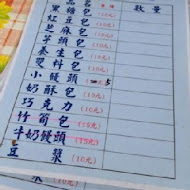 品名 數量
黑糖包(10元)
紅豆包(10元)
芝麻包(10元)
芋頭包(10元)
養生包(10元)
雙料包(10元)
小饅頭
奶酥包(10元)
巧克力(10元)
竹筍包(15元)
牛奶饅頭(15元)
豆漿(10元)